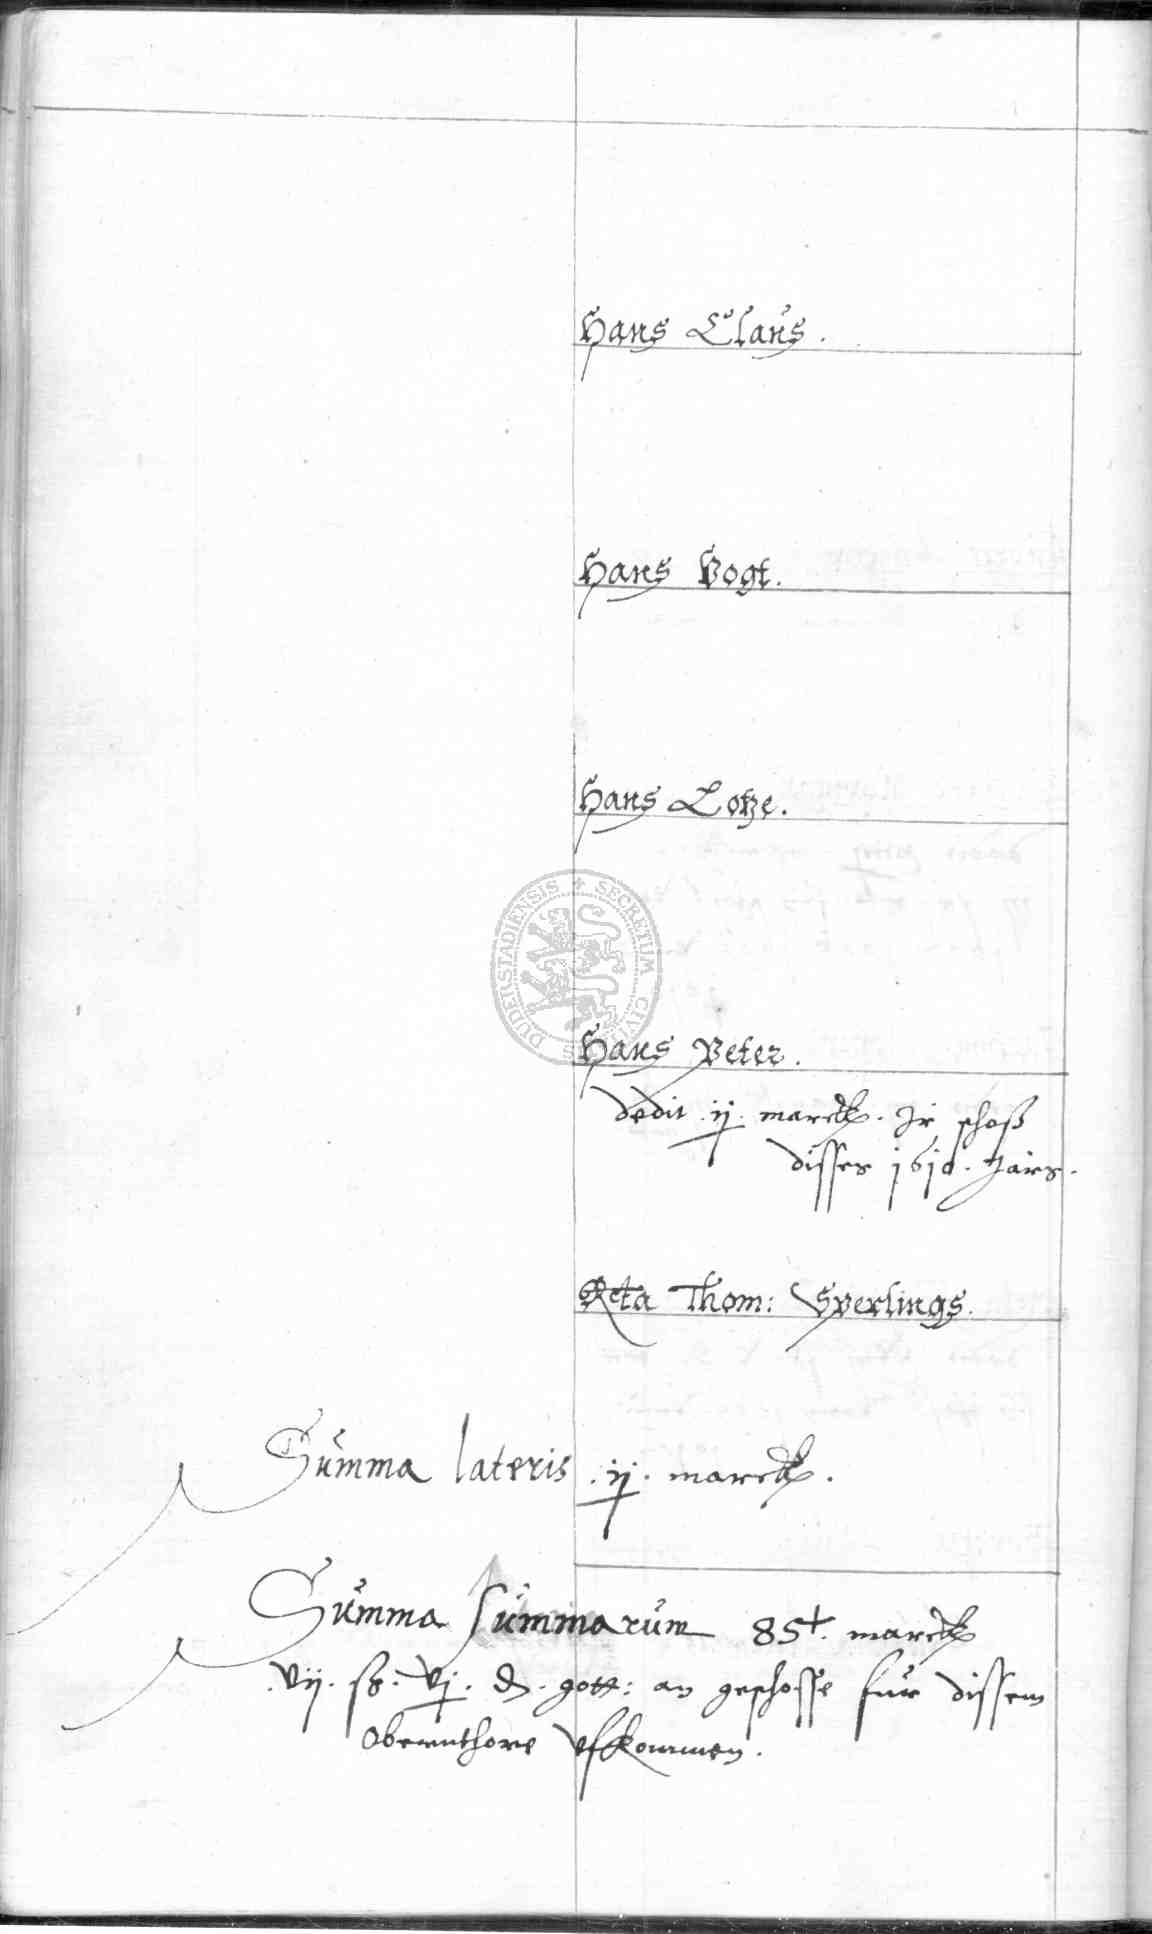 Hans Claus.
Hans Vogt.
Hans Lotze.
DUDERSTADIENSIS SECRETUM CIVITATIS
Hans Peter.
dedit .ij. marck. Ir schoß
disses 1610. Jars.
Reta Thom: Sperlings.
Summa lateris .ij. marck.
Summa summarum 85. marck
.vij. ß. vj. d. gott: an geschosse fur dissem
Obernthore vfkommen.